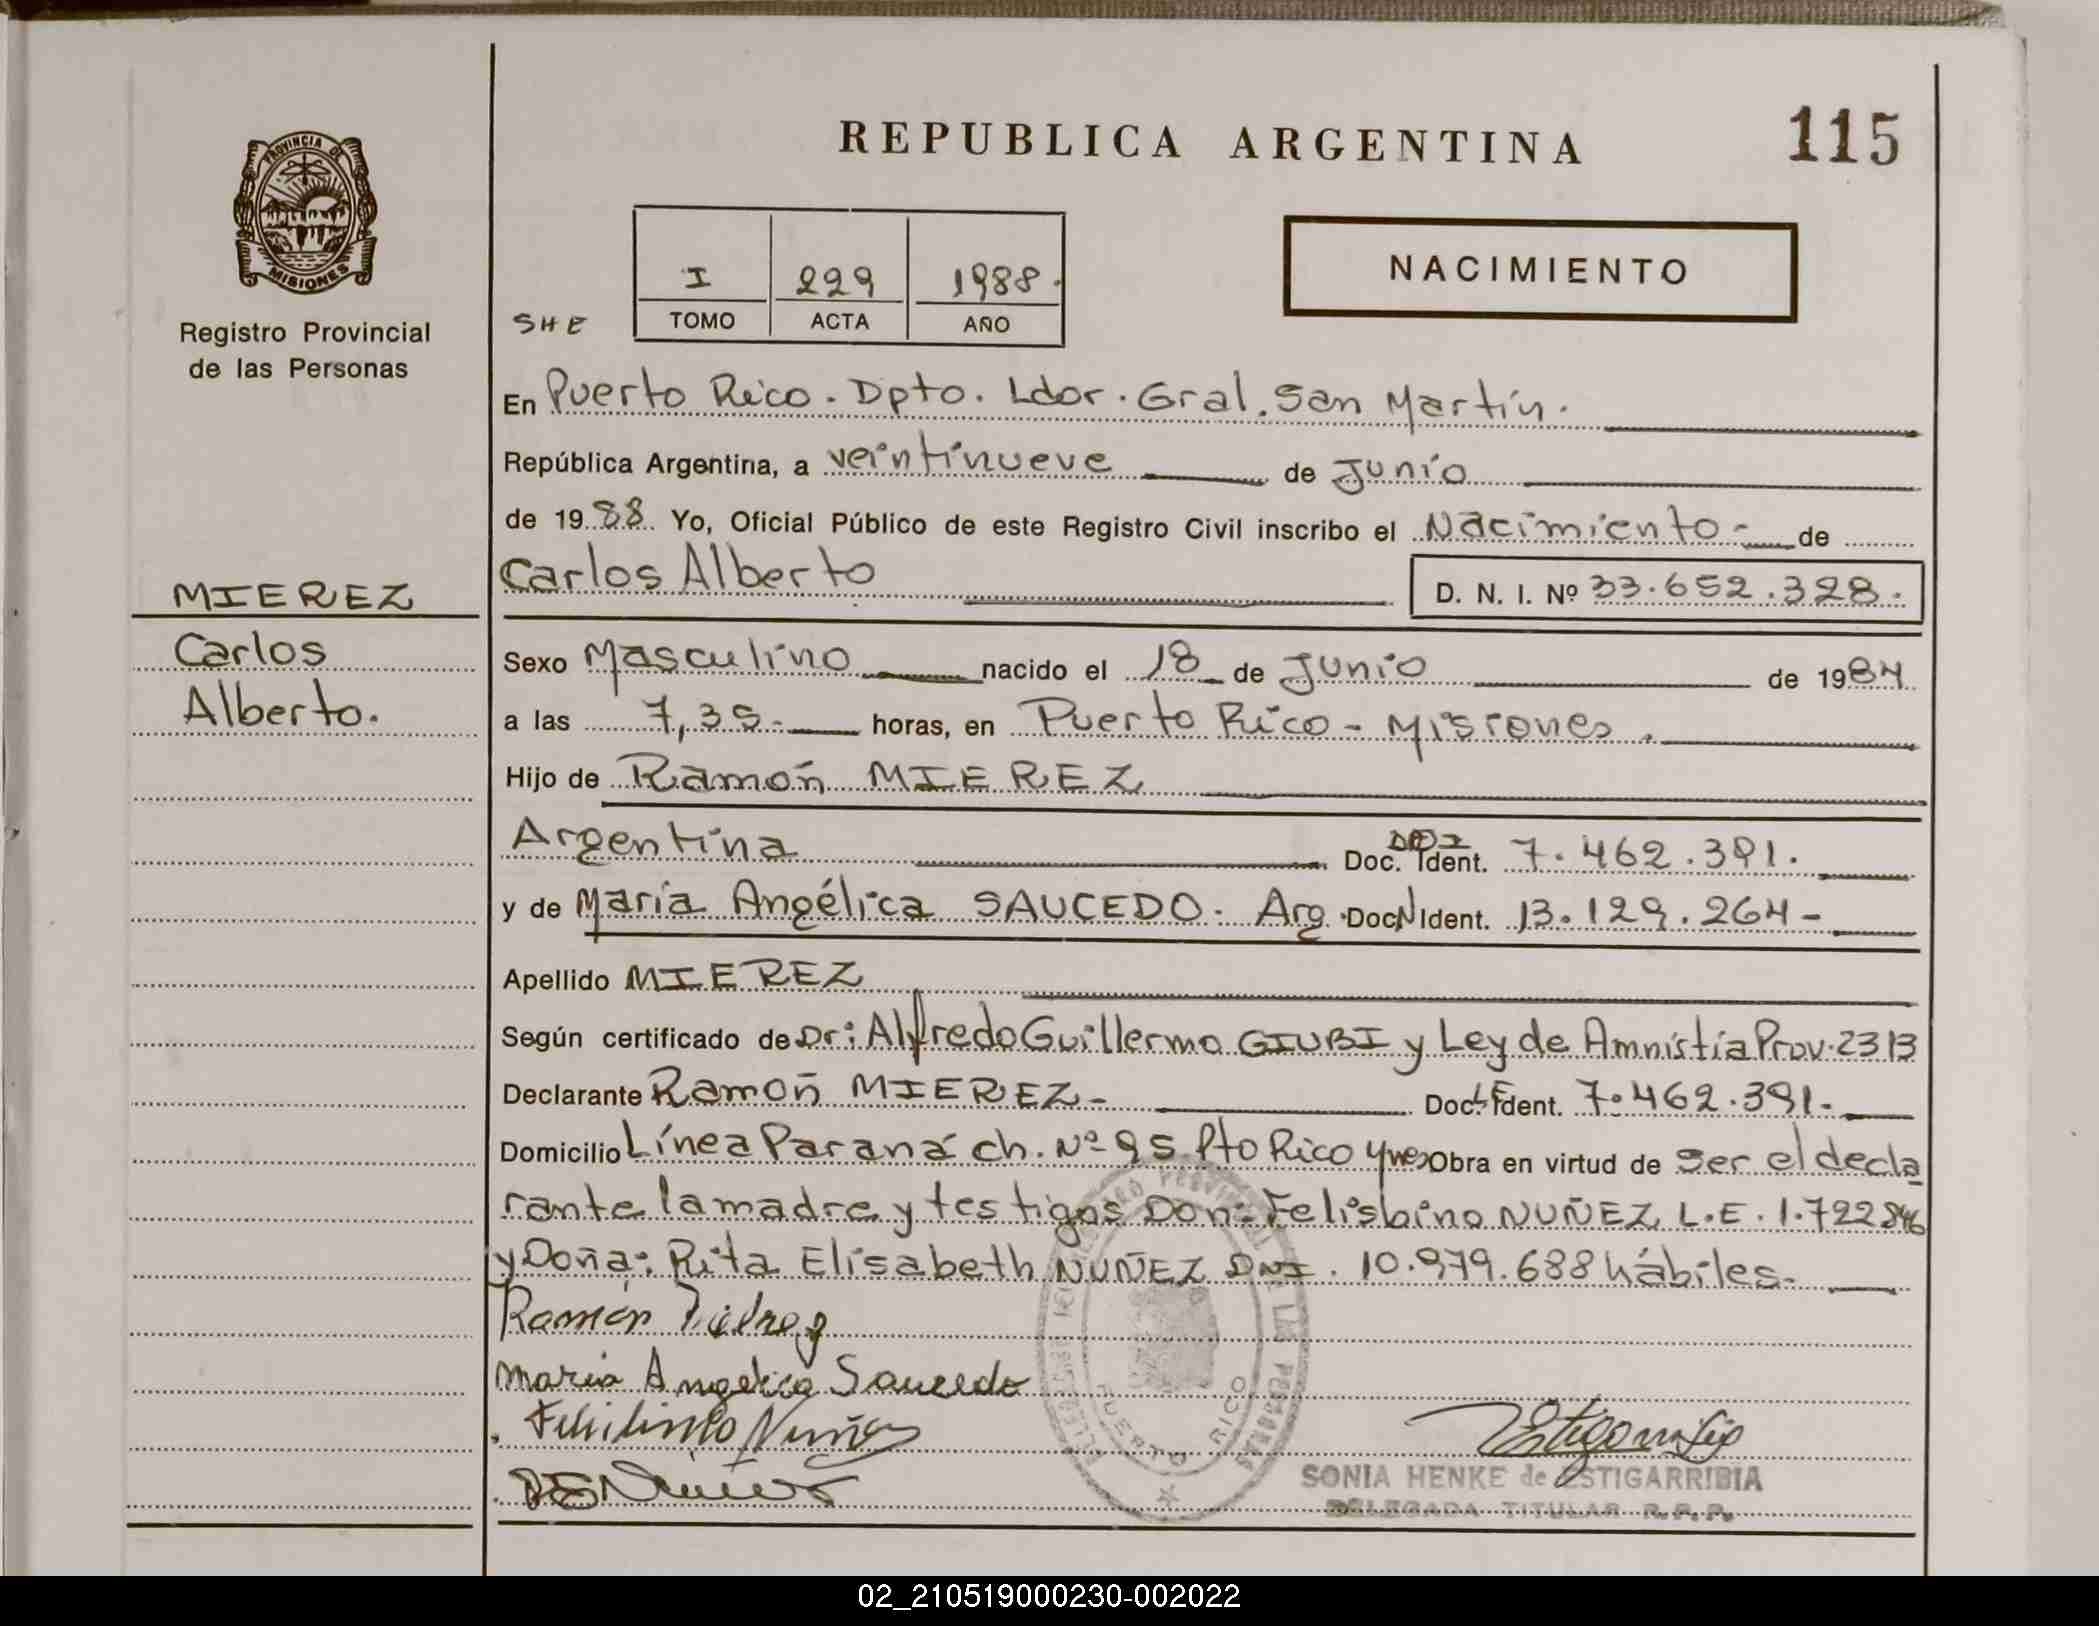 REPUBLICA ARGENTINA
115
PROVINCIA DE
MISIONES
Registro Provincial
de las Personas
I 229 1988.
TOMO ACTA AÑO
SHE
NACIMIENTO
MIEREZ
Carlos
Alberto.
En Puerto Rico. Dpto. Ldor. Gral. San Martín.
República Argentina, a veintinueve de Junio
de 1988 Yo, Oficial Público de este Registro Civil inscribo el Nacimiento- de
Carlos Alberto D. N. I. Nº 33.652.328.
Sexo Masculino nacido el 18 de Junio de 1984
a las 7,35- horas, en Puerto Rico - Misiones.
Hijo de Ramón MIEREZ
Argentina Doc. Ident. 7.462.391.
y de María Angélica SAUCEDO. Arg. Doc. Ident. 13.129.264-
Apellido MIEREZ
Según certificado de Dr: Alfredo Guillermo GIUBI y Ley de Amnistía Prov. 2313
Declarante Ramón MIEREZ- Doc. Ident. 7.462.391.
Domicilio Línea Paraná ch. Nº 95 Pto Rico Obra en virtud de ser el decla
rante la madre y testigos Don: Felisbino NUÑEZ L.E. 1.722.846
y Doña: Rita Elisabeth NUÑEZ DNI. 10.979.688 hábiles.
Ramón
Maria Angelica Saucedo
Nuñez
PUERTO RICO
SONIA HENKE de ESTIGARRIBIA
DELEGADA TITULAR R.P.P.
02_210519000230-002022